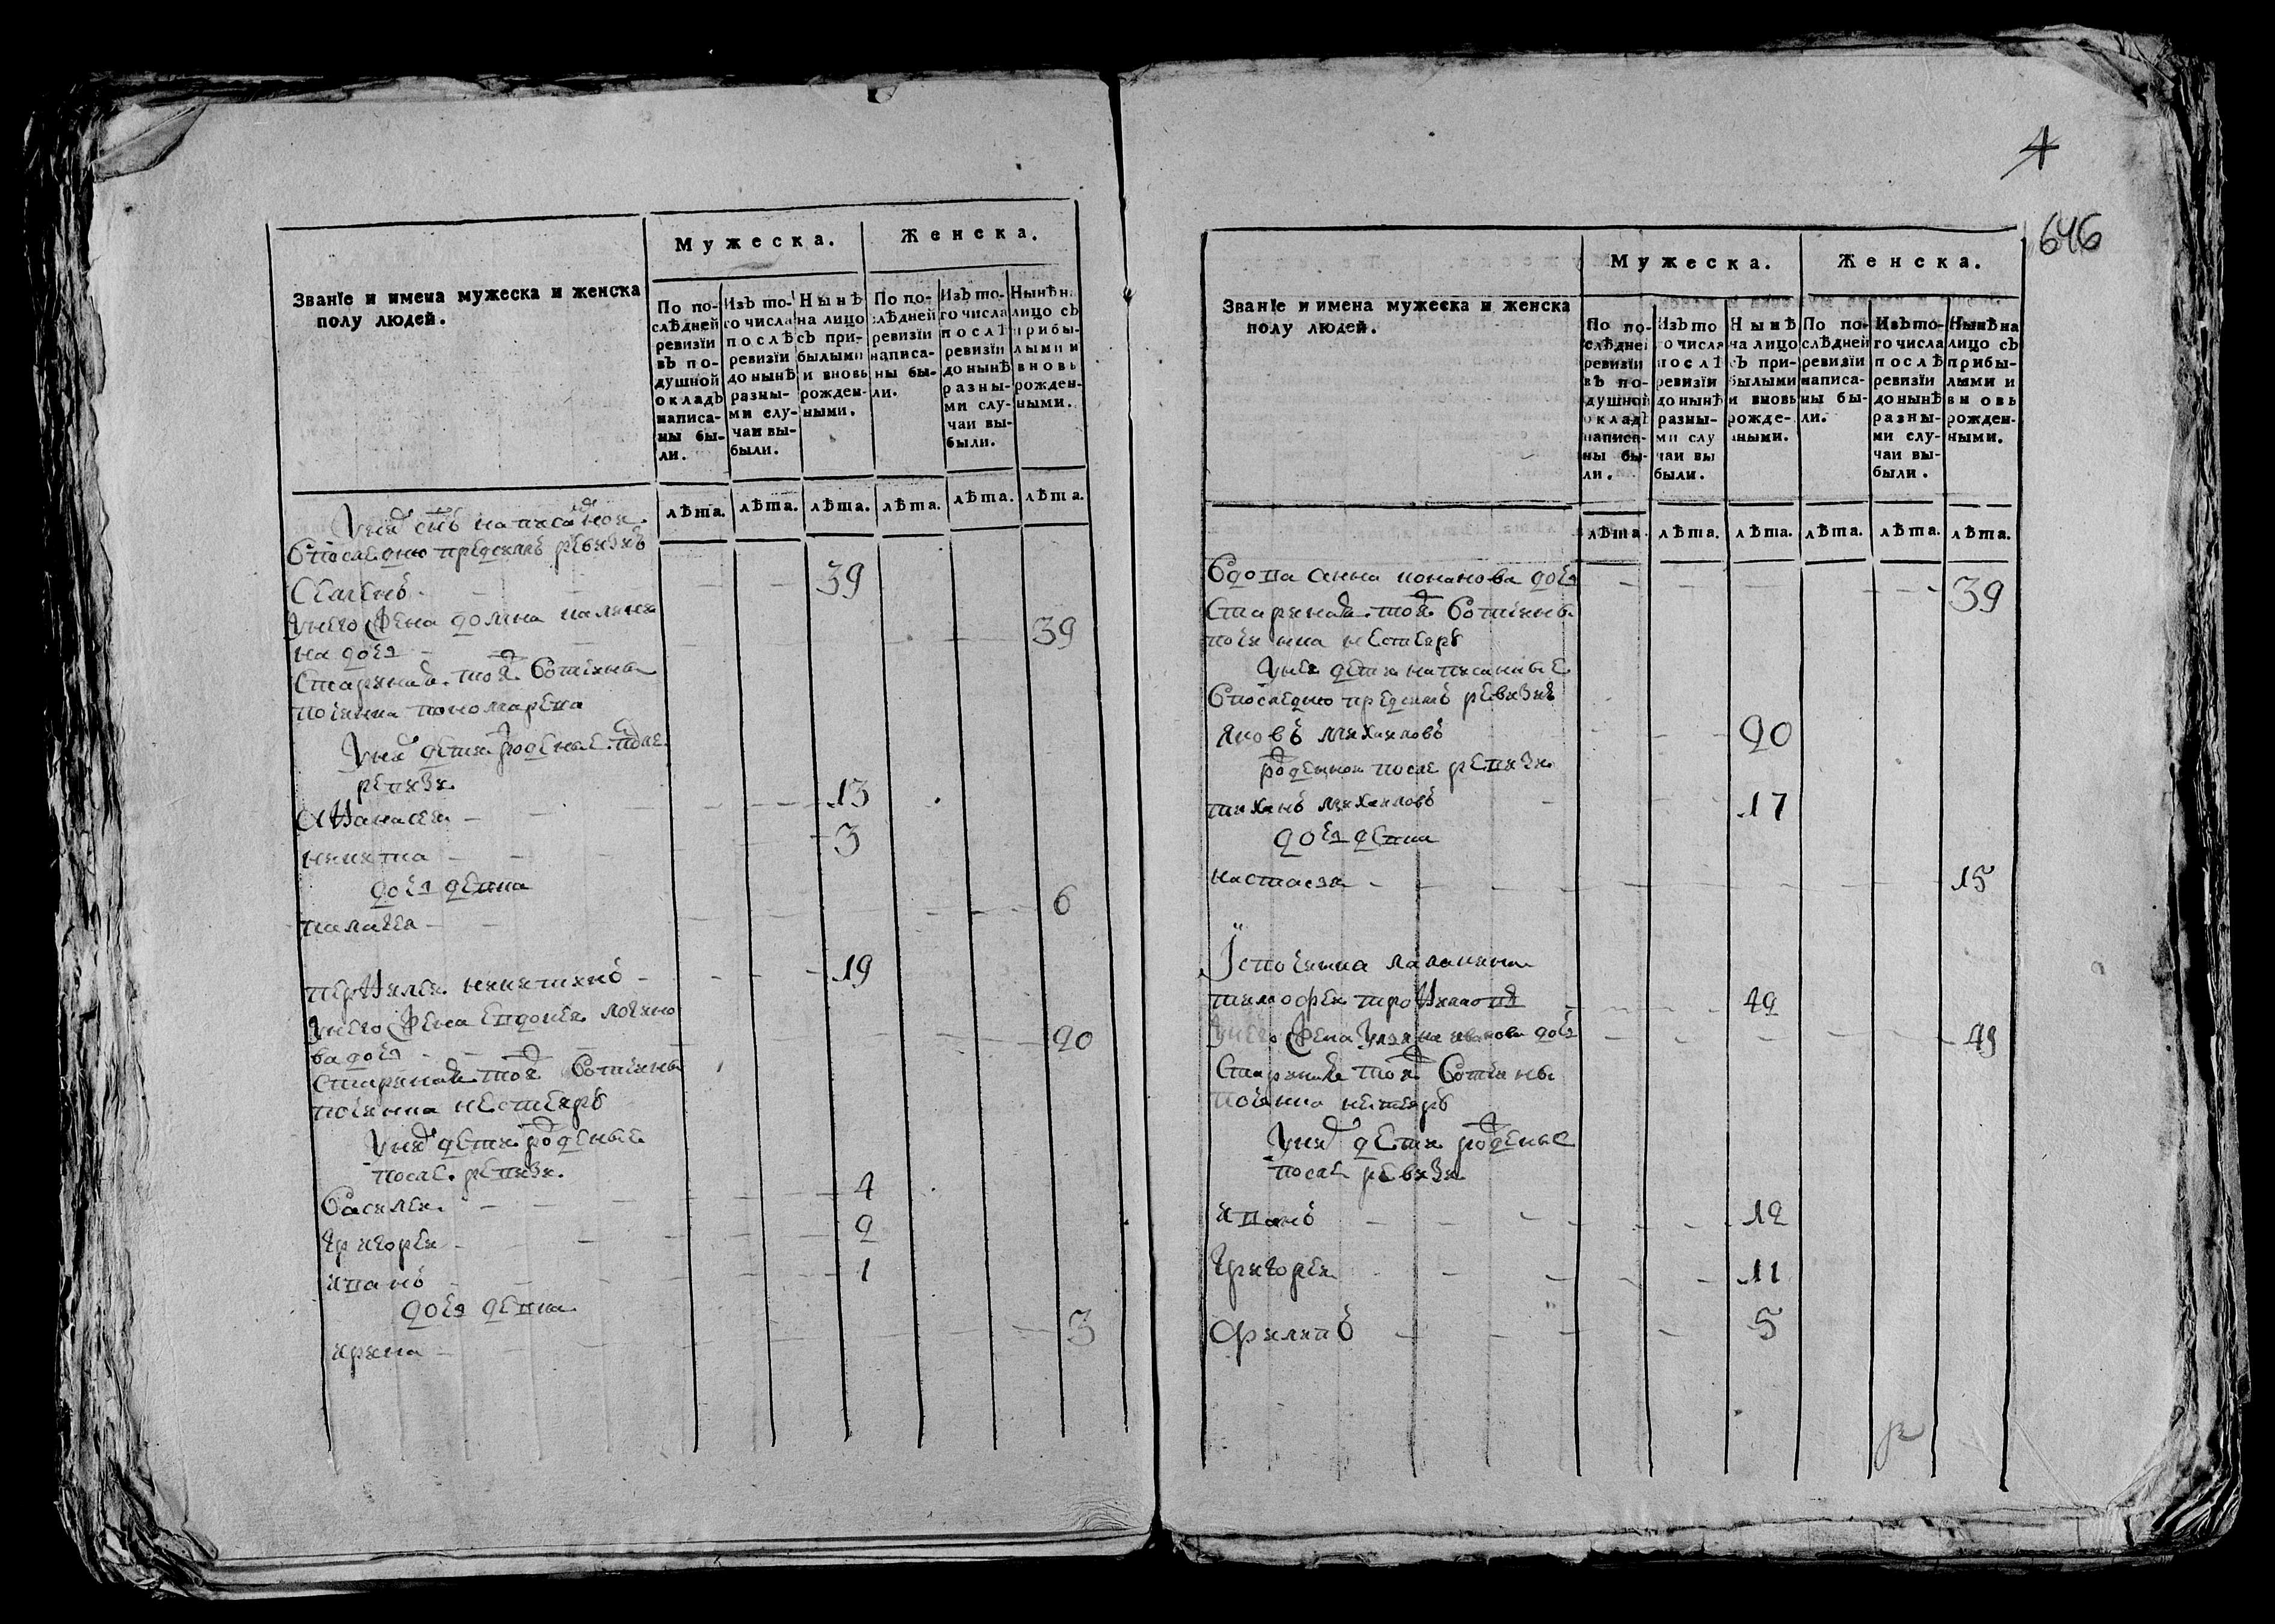 Званїе и имена мужеска и женска
полу людей.
Мужеска.
Женска.
По по-
слѣдней
ревизїи
въ по-
душной
окладъ
написа-
ны бы-
ли.
Изъ то-
го числа
послѣ
ревизїи
до нынѣ
разны-
ми слу-
чаи вы-
были.
Нынѣ
на лицо
съ при-
былыми
и вновь
рожден-
ными.
По по-
слѣдней
ревизїи
написа-
ны бы-
ли.
Изъ то-
го числа
послѣ
ревизїи
до нынѣ
разны-
ми слу-
чаи вы-
были.
Нынѣ на
лицо съ
прибы-
лыми и
вновь
рожден-
ными.
лѣта. лѣта. лѣта. лѣта. лѣта. лѣта.
снъ написаной
Впоследнюю пред ревизиѣ
Семенъ 39
у него жена домна
на дочь 39
Старинная той вотчины
починка пономарева
у них дети роденые после
ревизи
Афанасеи 13
никита 3
дочь девка
палагея 6
перфилеи никитинъ 19
у него жена Евдокея логино
ва дочь 20
Старинная той вотчины
починка нестеръ
у них дети роденые
после ревизи
Василеи 4
григореи 2
иванъ 1
дочь девка
ирина 3
4
646
Званїе и имена мужеска и женска
полу людей.
Мужеска.
Женска.
По по-
слѣдней
ревизїи
въ по-
душной
окладѣ
написа-
ны бы-
ли.
Изъ то
го числа
послѣ
ревизїи
до нынѣ
разны-
ми слу
чаи вы
были.
Нынѣ
на лицо
съ при-
былыми
и вновь
рожде-
нными.
По по-
слѣдней
ревизїи
написа-
ны бы-
ли.
Изъ то-
го числа
послѣ
ревизїи
до нынѣ
разны-
ми слу-
чаи вы-
были.
Нынѣ на
лицо съ
прибы-
лыми и
вновь
рожден-
ными.
лѣта. лѣта. лѣта. лѣта. лѣта. лѣта.
Вдова анна кононова дочь 39
Старинная той вотчины
починка нестеръ
у нея дети написанные
Впоследнюю пред ревизиѣ
яковъ михаиловъ 20
роденной после ревизи
тиханъ михаиловъ 17
дочь девка
настасья 15
Ис починка
тимофеи трофимовъ 49
у него жена ульяна иванова дочь 49
Старинная той вотчины
починка нестеръ
у них дети роденые
после ревизи
иванъ 12
григореи 11
филипъ 5